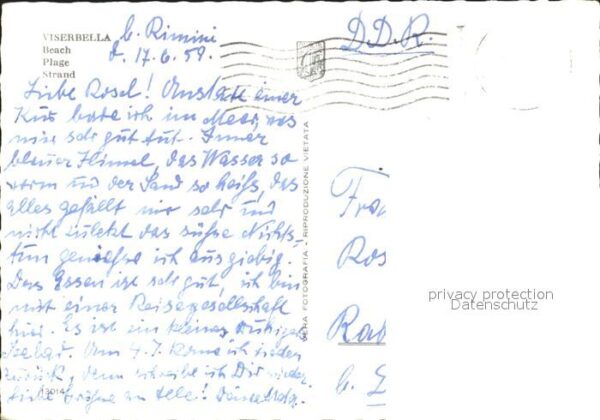 VISERBELLA
Beach
Plage
Strand
b. Rimini
d. 17.6.59.
Liebe Rosel! Anstatt einer
Kur bade ich im Meer, was
mir sehr gut tut. Immer
blauer Himmel, das Wasser so
warm und der Sand so heiß, das
alles gefällt mir sehr und
nicht zuletzt das süße Nichts-
tun genieße ich ausgiebig.
Das Essen ist sehr gut, ich bin
mit einer Reisegesellschaft
hier. Es ist ein kleines ruhiges
Am 4.7. komme ich wieder
zurück, dann schreibe ich Dir wieder.
Liebe Grüße an alle!
13014
VERA FOTOGRAFIA - RIPRODUZIONE VIETATA
D.D.R.
Fra
Ros
Rad
b.
privacy protection
Datenschutz